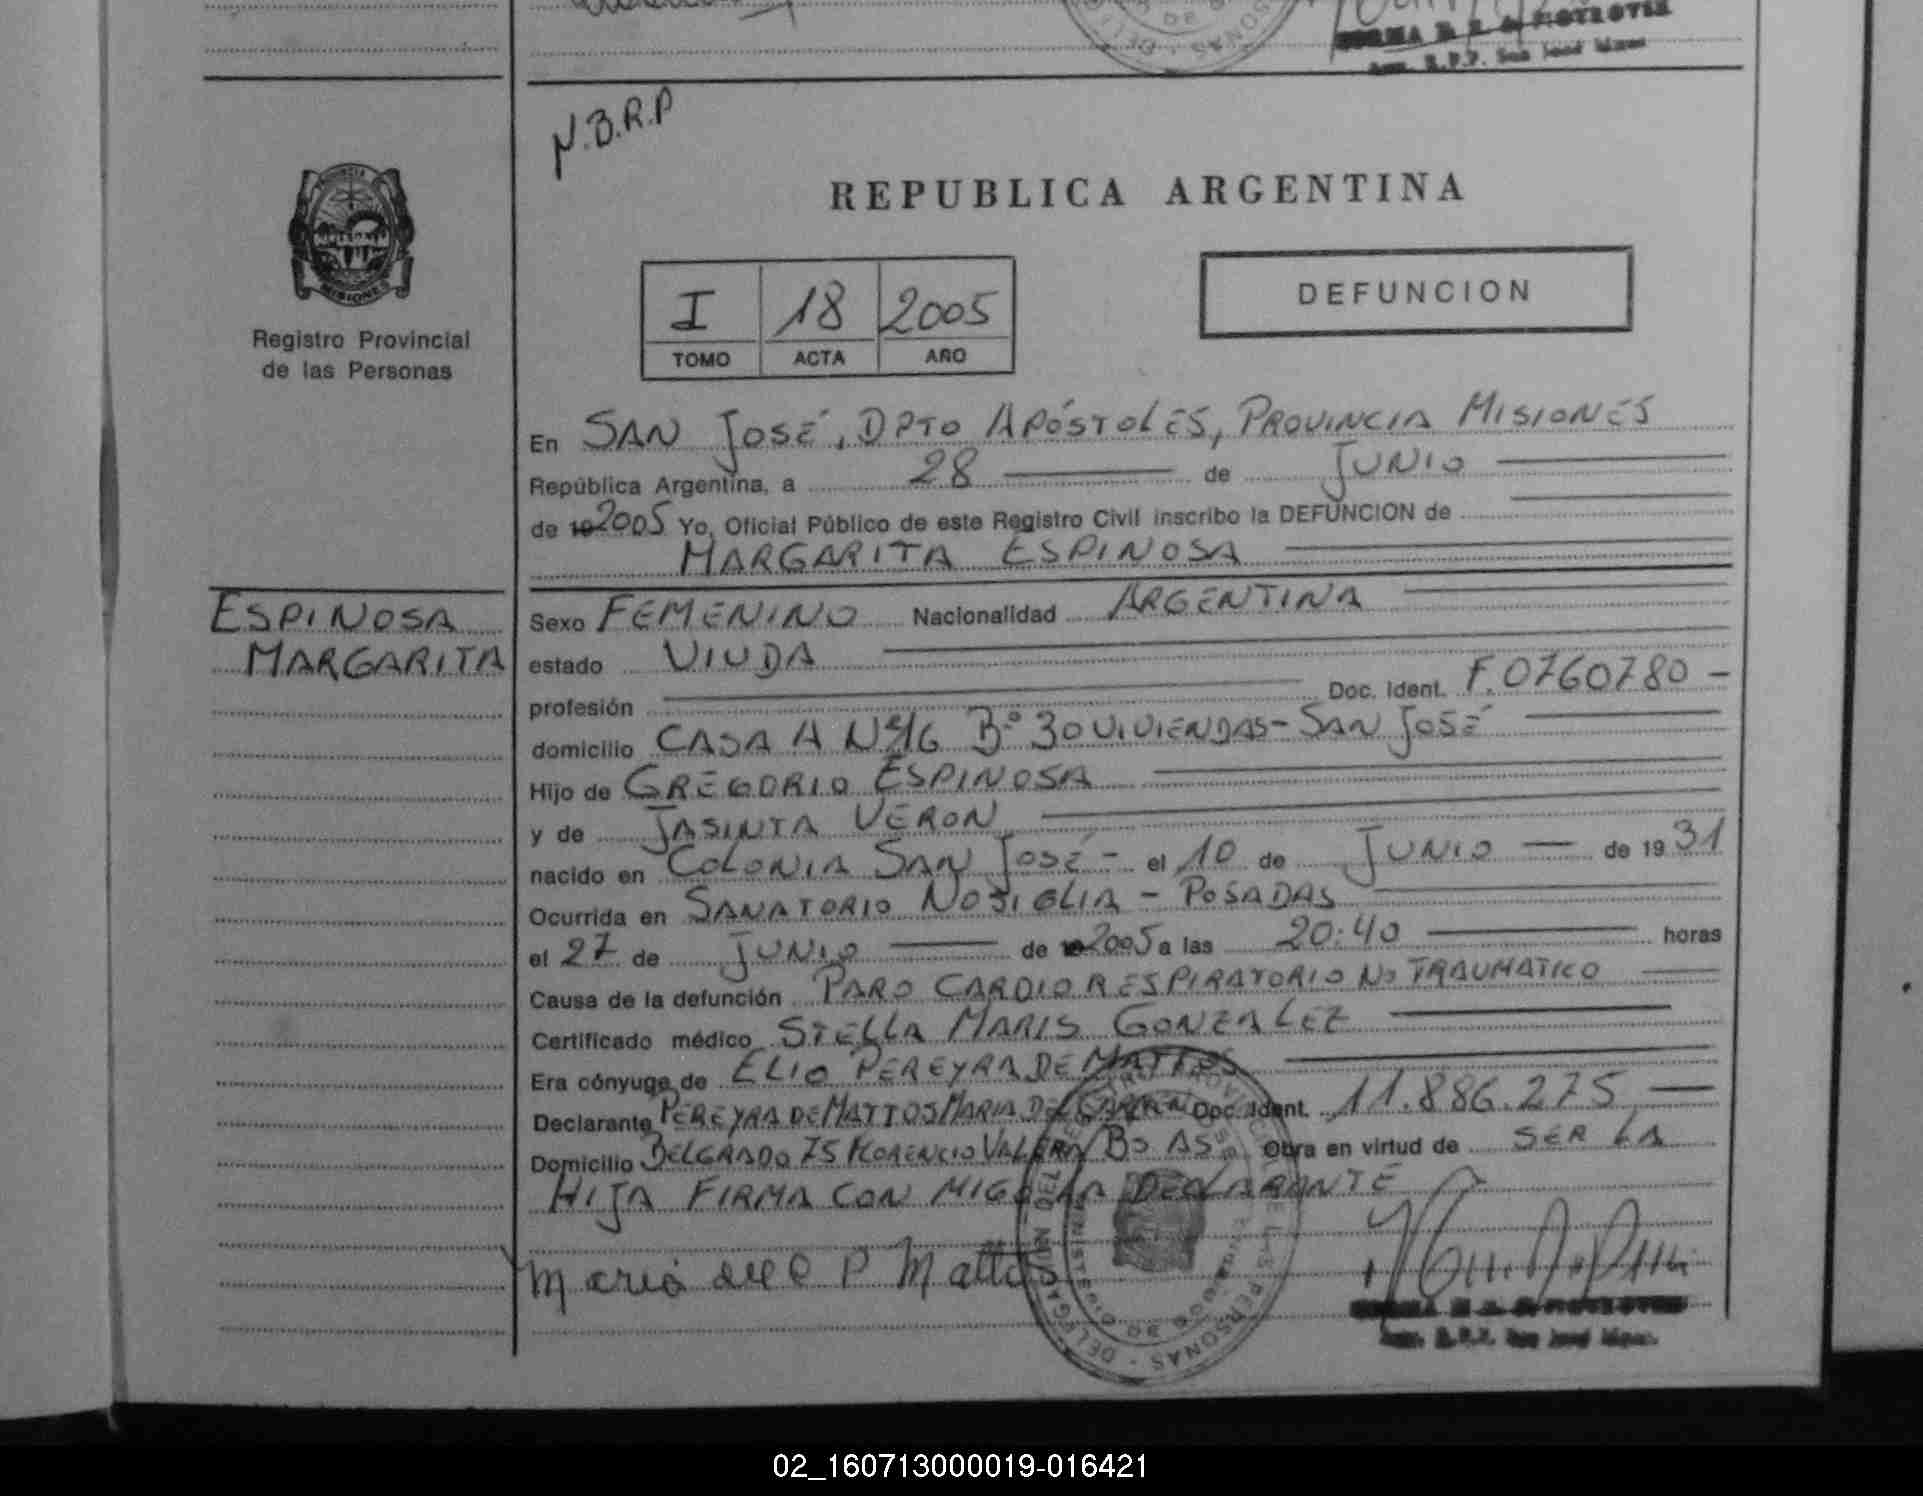 N.B.R.P
REPUBLICA ARGENTINA
PROVINCIA
MISIONES
Registro Provincial
de las Personas
I 18 2005
TOMO ACTA AÑO
DEFUNCION
En SAN JOSÉ, DPTO APÓSTOLES, PROVINCIA MISIONES
República Argentina, a 28 de JUNIO
de 19 2005 Yo, Oficial Público de este Registro Civil inscribo la DEFUNCION de
MARGARITA ESPINOSA
ESPINOSA
MARGARITA
Sexo FEMENINO Nacionalidad ARGENTINA
estado VIUDA
profesión Doc. Ident. F.0760780 -
domicilio CASA A Nº 16 Bº 30 VIVIENDAS - SAN JOSÉ
Hijo de GREGORIO ESPINOSA
y de JASINTA VERON
nacido en COLONIA SAN JOSÉ - el 10 de JUNIO de 19 31
Ocurrida en SANATORIO NOSIGLIA - POSADAS
el 27 de JUNIO de 19 2005 a las 20:40 horas
Causa de la defunción PARO CARDIORESPIRATORIO NO TRAUMATICO
Certificado médico STELLA MARIS GONZALEZ
Era cónyuge de ELIO PEREYRA DE MATTOS
Declarante PEREYRA DE MATTOS MARIA DEL CARMEN Doc. Ident. 11.886.275
Domicilio BELGRADO 75 FLORENCIO VALERA BS AS Obra en virtud de SER LA
HIJA FIRMA CON MIGO LA DECLARANTE
Maria del C P Mattos
02_160713000019-016421